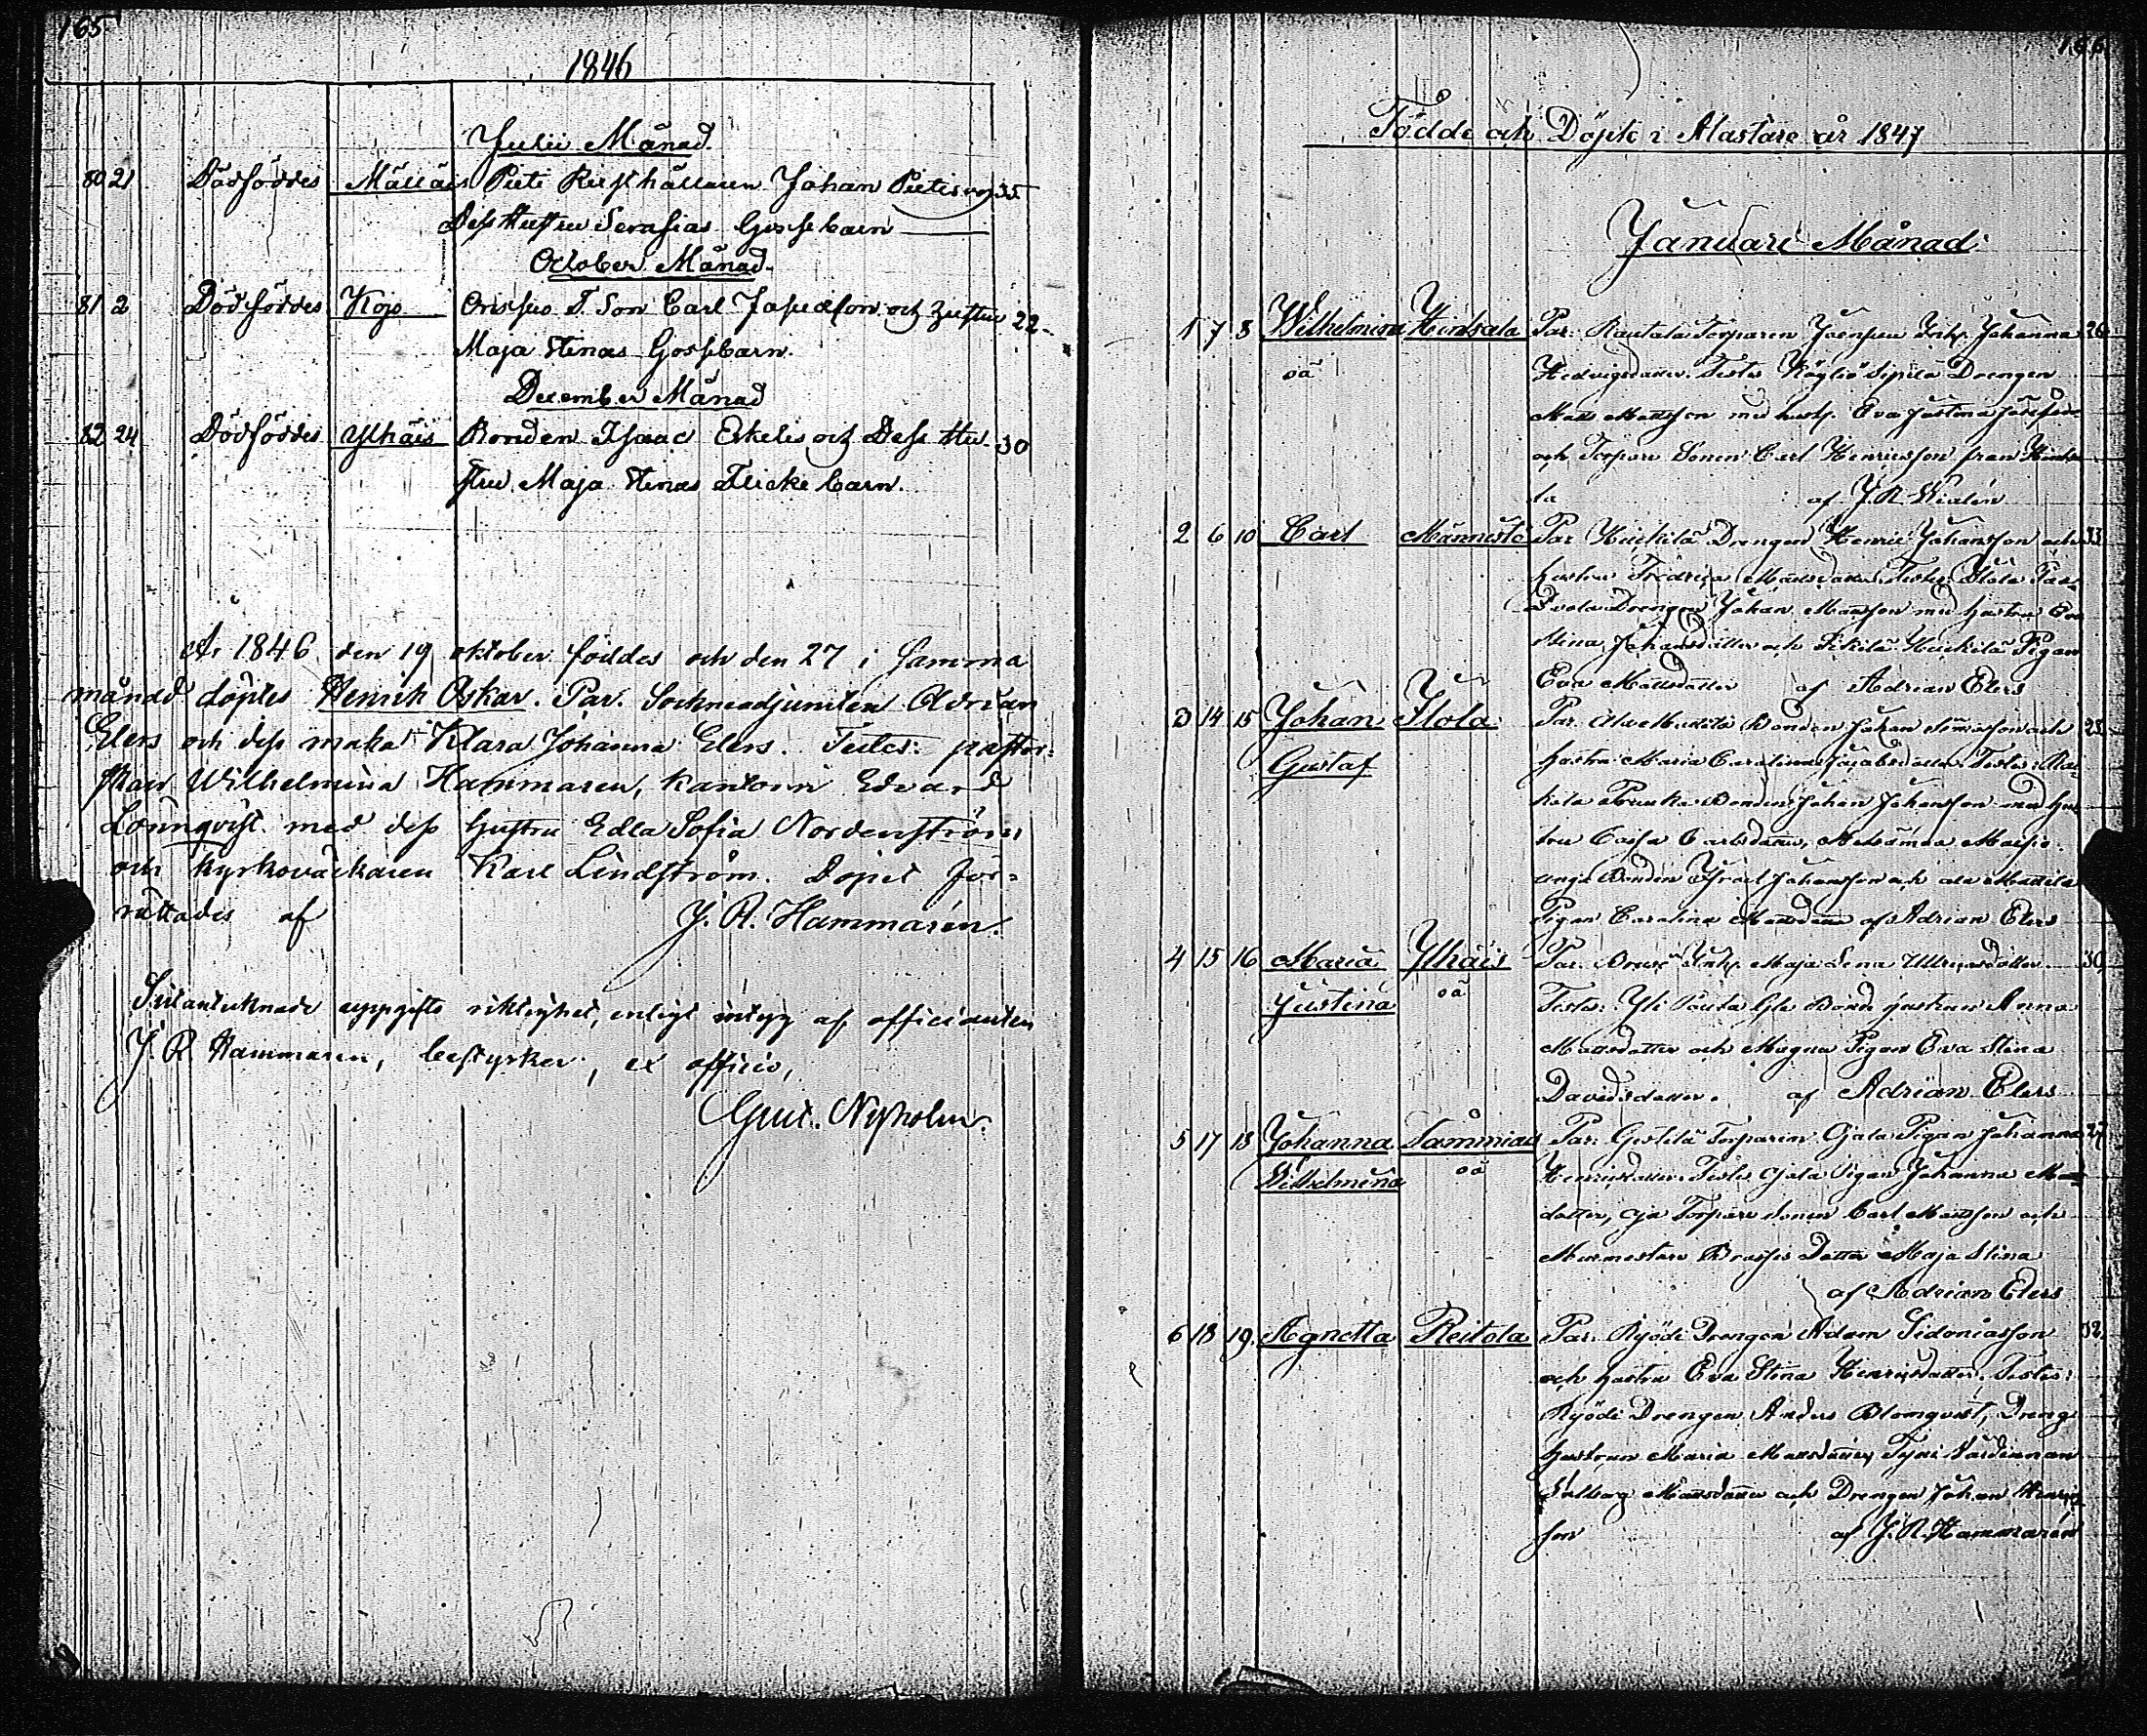 165
1846
Julii Månad
80 21 Dödföddes Mälläis Pieti Rusthållaren Johan Pietis och 35
Dess Hustru Serafias Gossebarn
October Månad
81 2 Dödföddes Kojo Orisuo T. Son Carl Josefsson och hustru 22
Maja Stinas Gossebarn.
December Månad
82 24 Dödföddes Ylhäis Bonden Isaac Eskelis och Dess Hu- 30
stru Maja Stinas Flickebarn.
År 1846 den 19 oktober föddes och den 27 i samma
månad döptes Henrik Oskar. Par. Sockneadjunkten Adrian
Elers och dess maka Klara Johanna Elers. Testes: pastor-
skan Wilhelmina Hammaren, kantorn Edvard
Lönnqvist med dess hustru Edla Sofia Nordenström
och kyrkoväktaren Karl Lindström. Dopet för-
rättades af J. R. Hammarén.
uppgifts riktighet, enligt intyg af officianten
J. R. Hammaren, bestyrker, ex officio,
Gust. Nyholm.
166
Födde och Döpte i Alastaro år 1847
Januari Månad
1 7 8 Wilhelmina Hindsala Par. Rautala Torparen Inh. Johanna 26
oä Hedvigsdotter. Testes Köyliö Sipilä Drengen
Matts Mattsson med hust. Eva Justina
och Torpare Sonen Carl Henricsson från Hindsa
la af J. R.
2 6 10 Carl Männistö Par Huikila Drengen Henric Johansson och 33
hustru Fredrica Mattsdotter Testes: Ilola
Drengen Johan Mattsson med hustru Eva
Stina Johansdotter och Huikila Pigan
Eva Mattsdotter af Adrian Elers
3 14 15 Johan Ilola Par. Bonden Johan Simonsson och 28
Gustaf hustru Maria Carolina Jacobsdotter Testes:
Bonden Johan Johansson med hus
tru Cajsa Carlsdotter,
Bonden Israel Johansson och
Pigan Carolina af Adrian Elers
4 15 16 Maria Ylhäis Par. Inh. Maja Lena Ullricsdotter 30
Justina oä Testes: Yli Bond hustrun Anna
Mattsdotter och Pigan Eva Stina
Davidsdotter. af Adrian Elers
5 17 18 Johanna Tammiais Par. Torparen Ojala Pigan Johanna 27
Wilhelmina oä Henricsdotter. Testes Ojala Pigan Johanna
dotter, Oja Torpare Sonen Carl Mattsson och
Dotter Maja Stina
af Adrian Elers
6 18 19. Agnetta Reitola Par. Ryödi Drengen Adam Sidoniasson 32.
och hustru Eva Stina Henricsdotter. Testes:
Ryödi Drengen Anders Blomqvist, Dreng
hustrun Maria Mattsdotter,
Mattsdotter och Drengen Johan Henrics
son af J. R. Hammarén